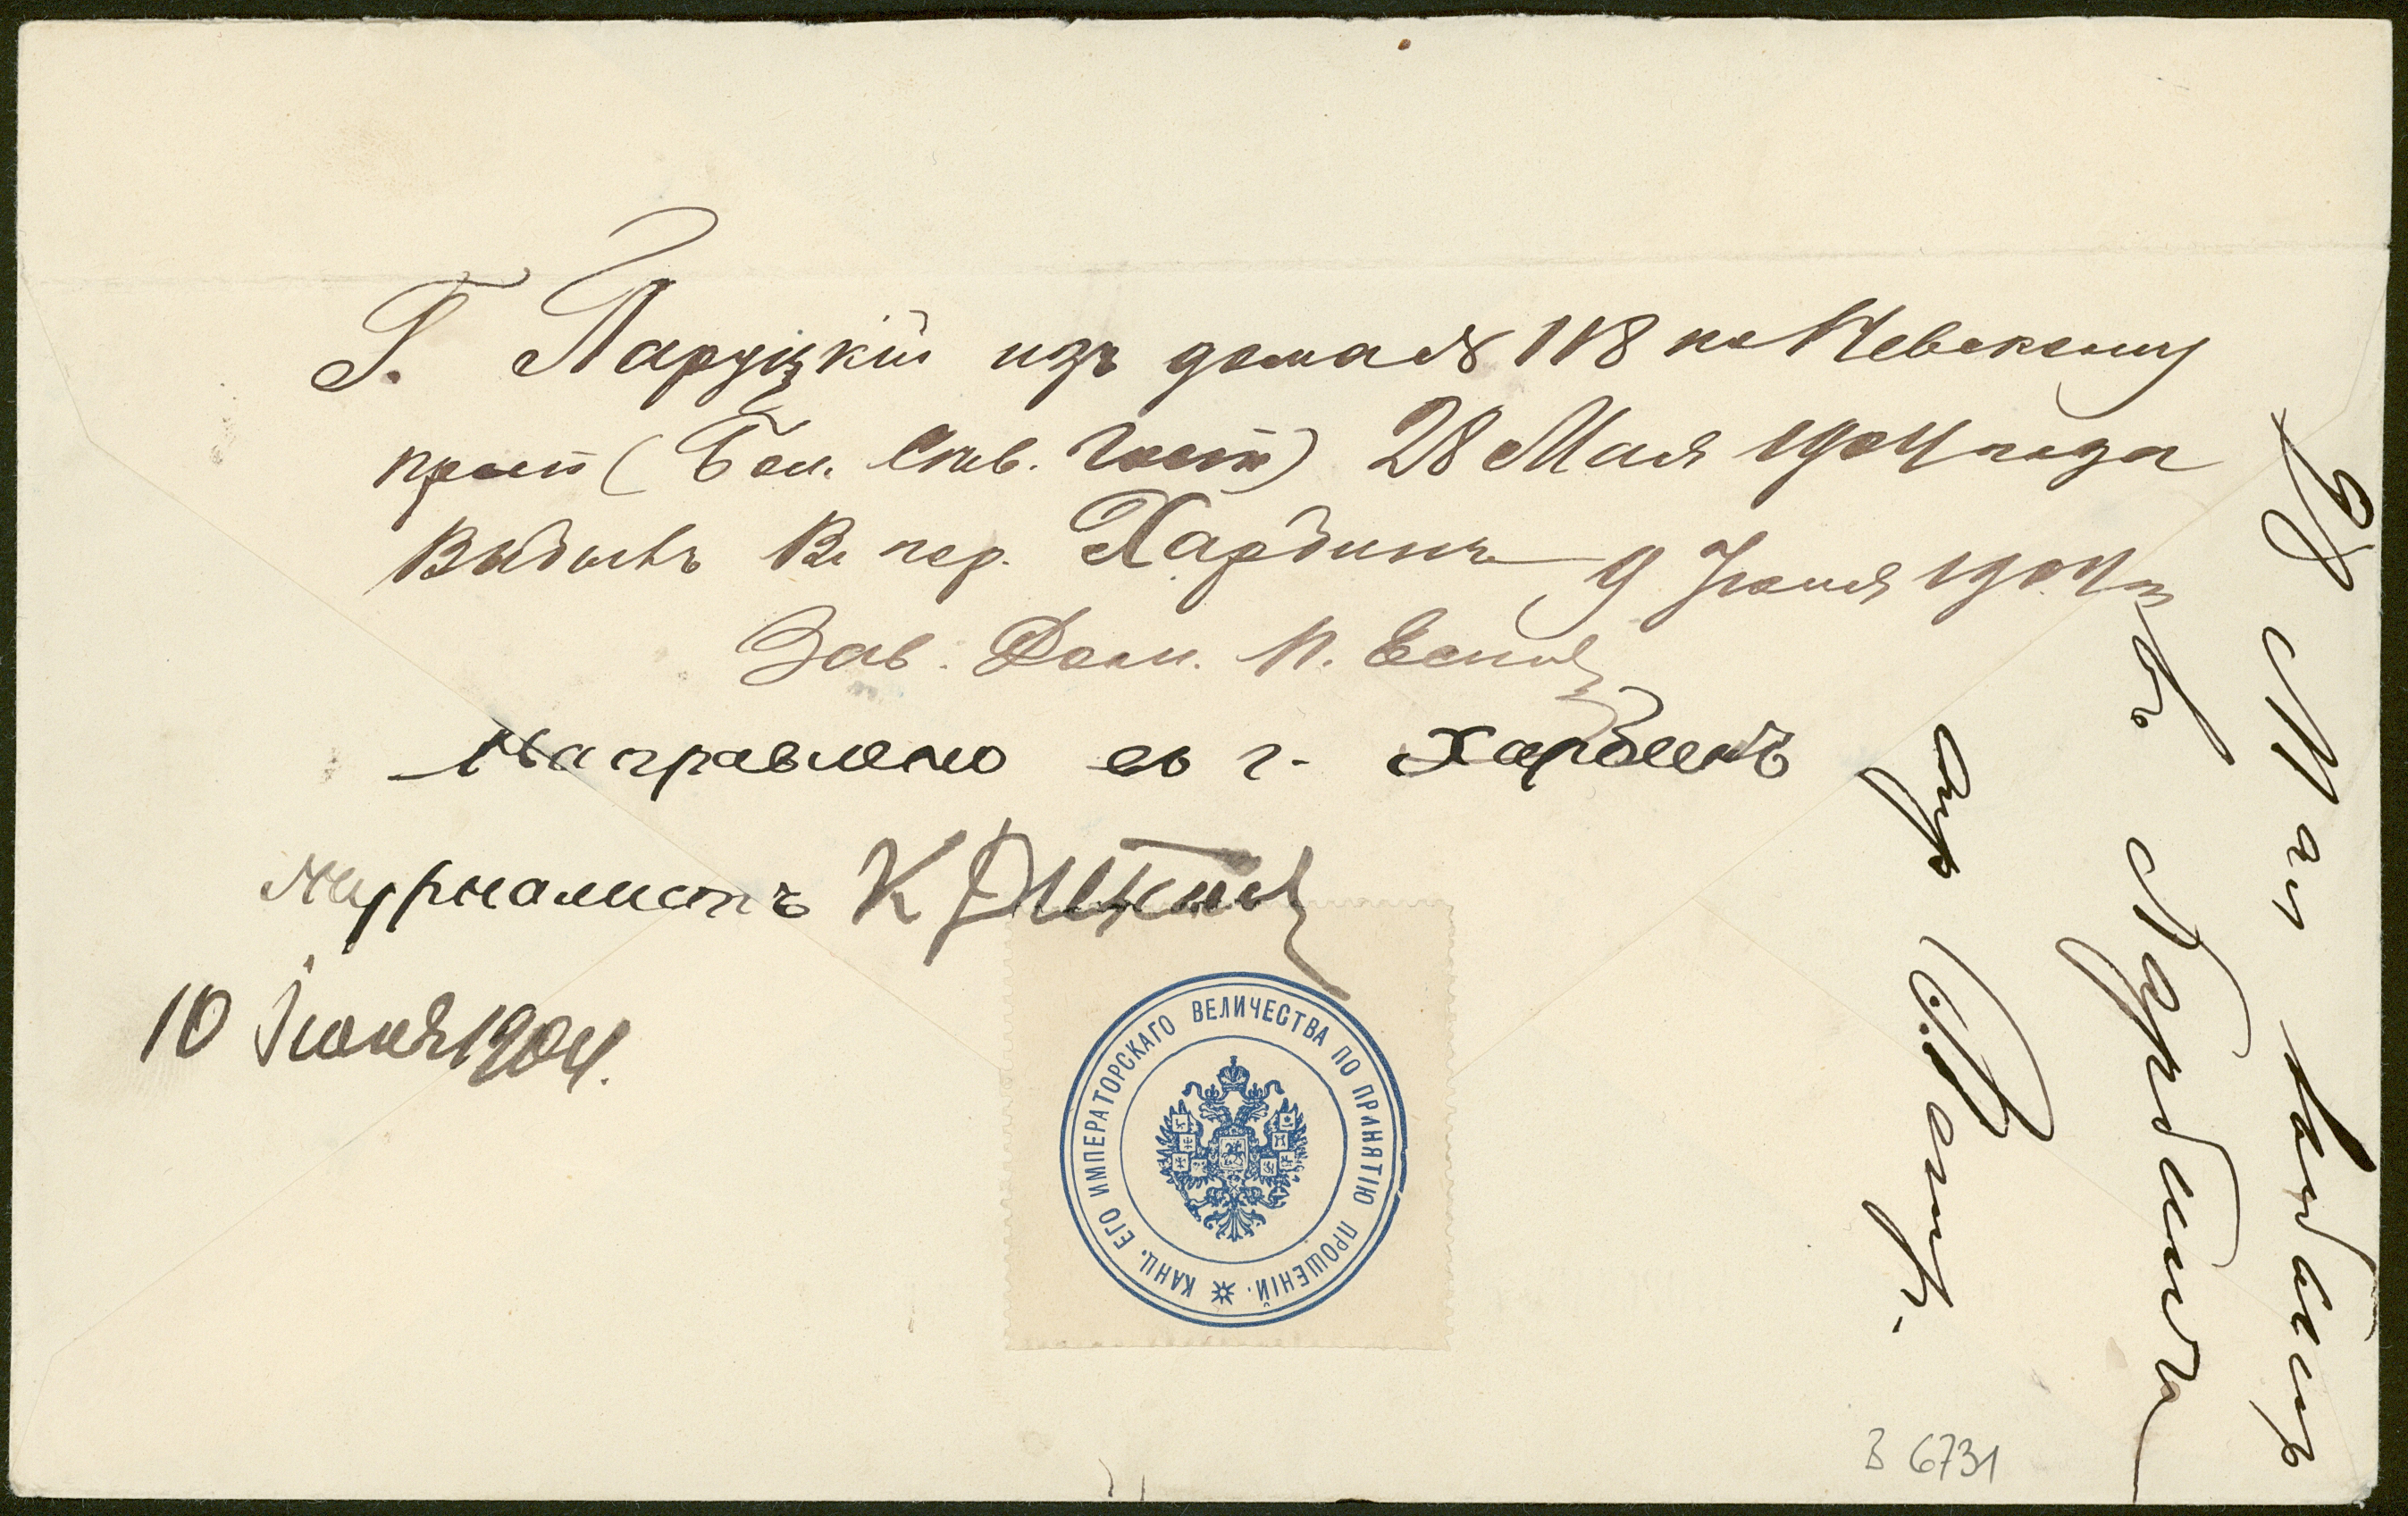 Г. Паруцкій изъ дома № 118 по Невскому
просп (Бол. Сѣв. Гост) 28 Мая 1904 года
Выбылъ Въ гор. Харбинъ 9 Іюня 1904 г
Зав. Дом. П.
Направлено въ г. Харбинъ
Журналистъ К
10 Іюня 1904.
28 Мая выбылъ
въ Харбинъ
КАНЦ. ЕГО ИМПЕРАТОРСКАГО ВЕЛИЧЕСТВА ПО ПРИНЯТІЮ ПРОШЕНІЙ.
B 6731